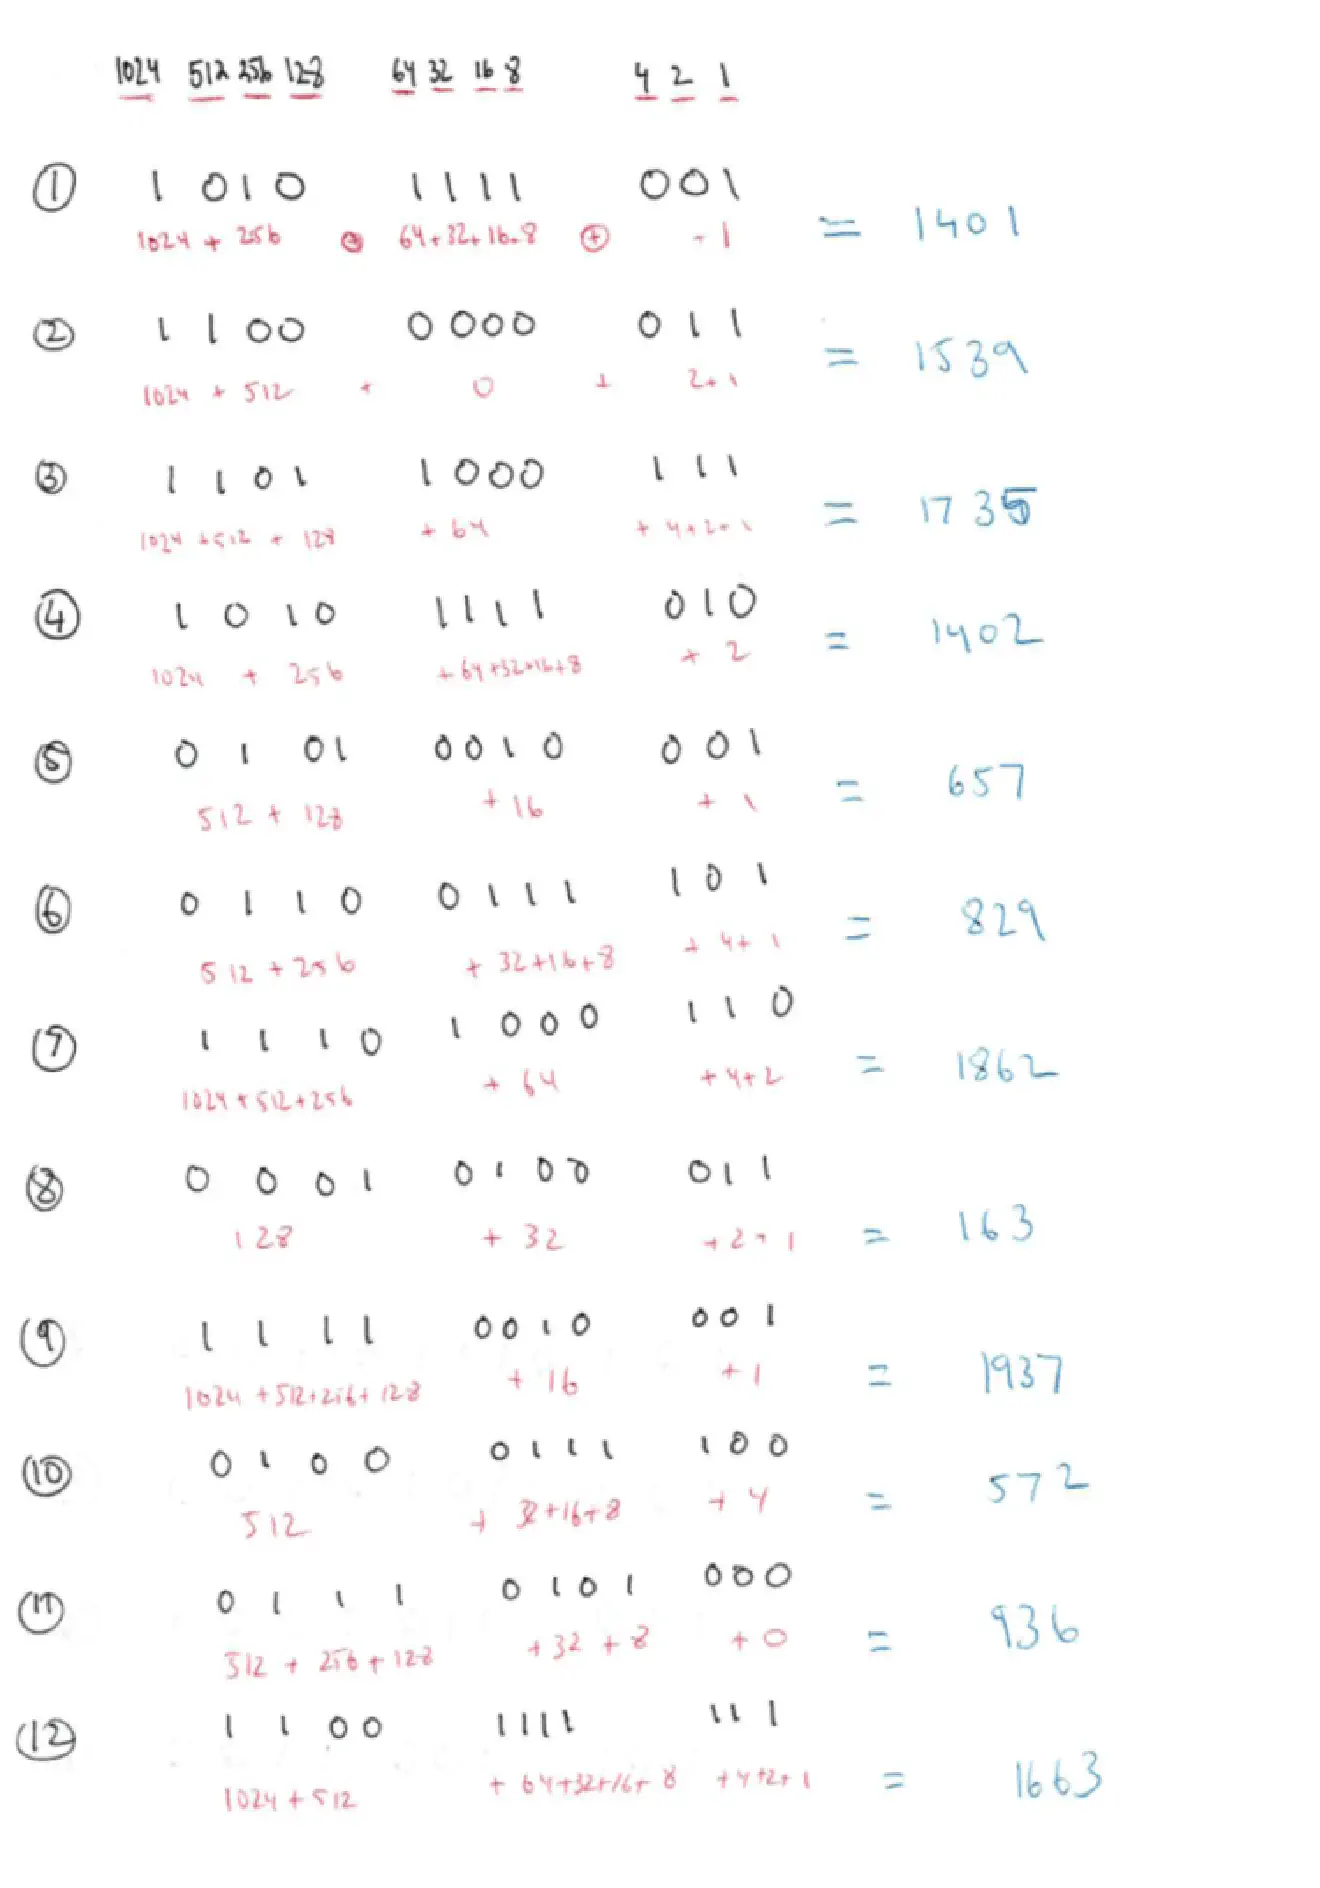 1024 512 256 128 64 32 16 8 4 2 1
① 1 0 1 0 1 1 1 1 0 0 1
1024 + 256 + 64+32+16+8 + - 1 = 1401
② 1 1 0 0 0 0 0 0 0 1 1
1024 + 512 + 0 + 2+1 = 1539
③ 1 1 0 1 1 0 0 0 1 1 1
1024 +512 + 128 + 64 + 4+2+1 = 1735
④ 1 0 1 0 1 1 1 1 0 1 0
1024 + 256 + 64+32+16+8 + 2 = 1402
⑤ 0 1 0 1 0 0 1 0 0 0 1
512 + 128 + 16 + 1 = 657
⑥ 0 1 1 0 0 1 1 1 1 0 1
512 + 256 + 32+16+8 + 4+ 1 = 829
⑦ 1 1 1 0 1 0 0 0 1 1 0
1024+512+256 + 64 + 4+2 = 1862
⑧ 0 0 0 1 0 1 0 0 0 1 1
128 + 32 + 2 + 1 = 163
⑨ 1 1 1 1 0 0 1 0 0 0 1
1024 +512+256+ 128 + 16 + 1 = 1937
⑩ 0 1 0 0 0 1 1 1 1 0 0
512 + 32+16+8 + 4 = 572
⑪ 0 1 1 1 0 1 0 1 0 0 0
512 + 256 + 128 + 32 + 8 + 0 = 936
⑫ 1 1 0 0 1 1 1 1 1 1 1
1024 + 512 + 64+32+16+ 8 + 4+2+ 1 = 1663